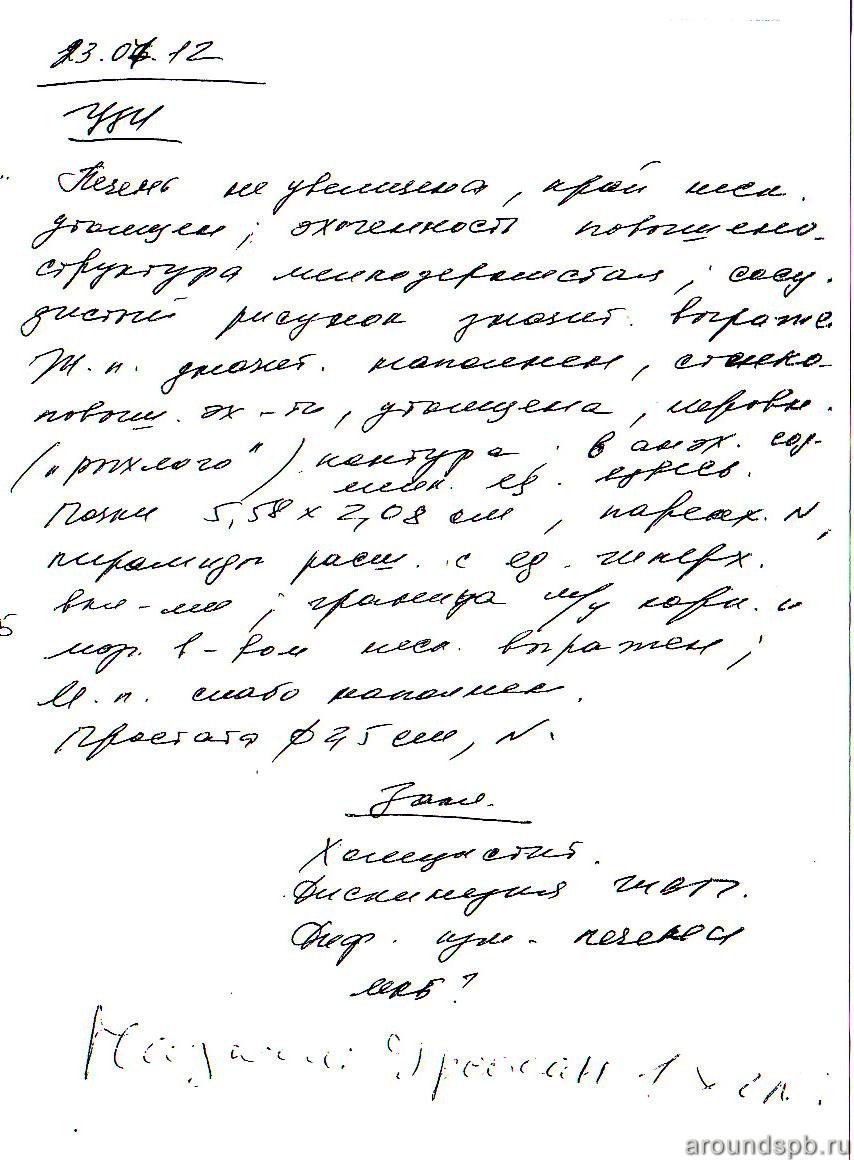 23.04.12
УЗИ
Печень не увеличена, край неск.
утолщен; эхогенность повышена.
структура мелкозернистая; сосу.
дистый рисунок значит. выраже.
Ж.п. значит. наполнен, стенка
повыш. эх-ти, утолщена, неровн.
("рыхлого") контура; в анэх. сод.
мелк. ед. взвесь.
Почки 5,58 x 2,08 см, паренх. N,
пирамиды расш. с ед. гиперэх.
вкл-ми; граница м/у корк. и
мозг. в-вом неск. выражен;
М.п. слабо наполнен.
Простата ф 2,5 см, N.
Закл.
Холецистит.
Дискинезия ЖВП.
Диф. изм. печени
МКБ?
1 x
aroundspb.ru